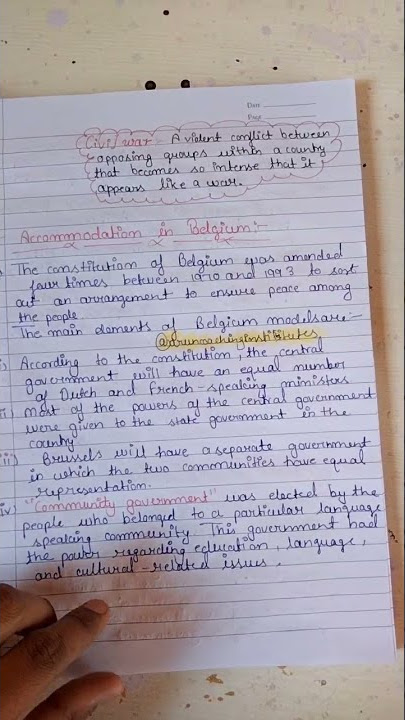 Date
Page
Civil war - A violent conflict between
opposing groups within a country
that becomes so intense that it
appears like a war.
Accommodation in Belgium:-
The constitution of Belgium was amended
four times between 1970 and 1993 to sort
out an arrangement to ensure peace among
the people
The main elements of Belgium models are:-
i) According to the constitution, the central
government will have an equal number
of Dutch and French-speaking ministers
ii) Most of the powers of the central government
were given to the state government in the
country
iii) Brussels will have a separate government
in which the two communities have equal
representation.
iv) "Community government" was elected by the
people who belonged to a particular language
speaking community. This government had
the power regarding education, language,
and cultural-related issues.